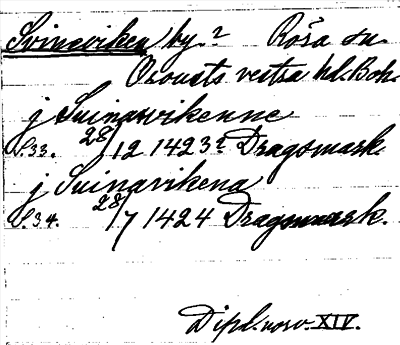 Svinaviken by? Röra sn.
Orousts vestra hd. Boh.
j Suinawikenne
S. 33. 28/12 1423? Dragsmark.
j Suinavikena
S. 34. 28/7 1424 Dragsmark.
Dipl. norv. XIV.